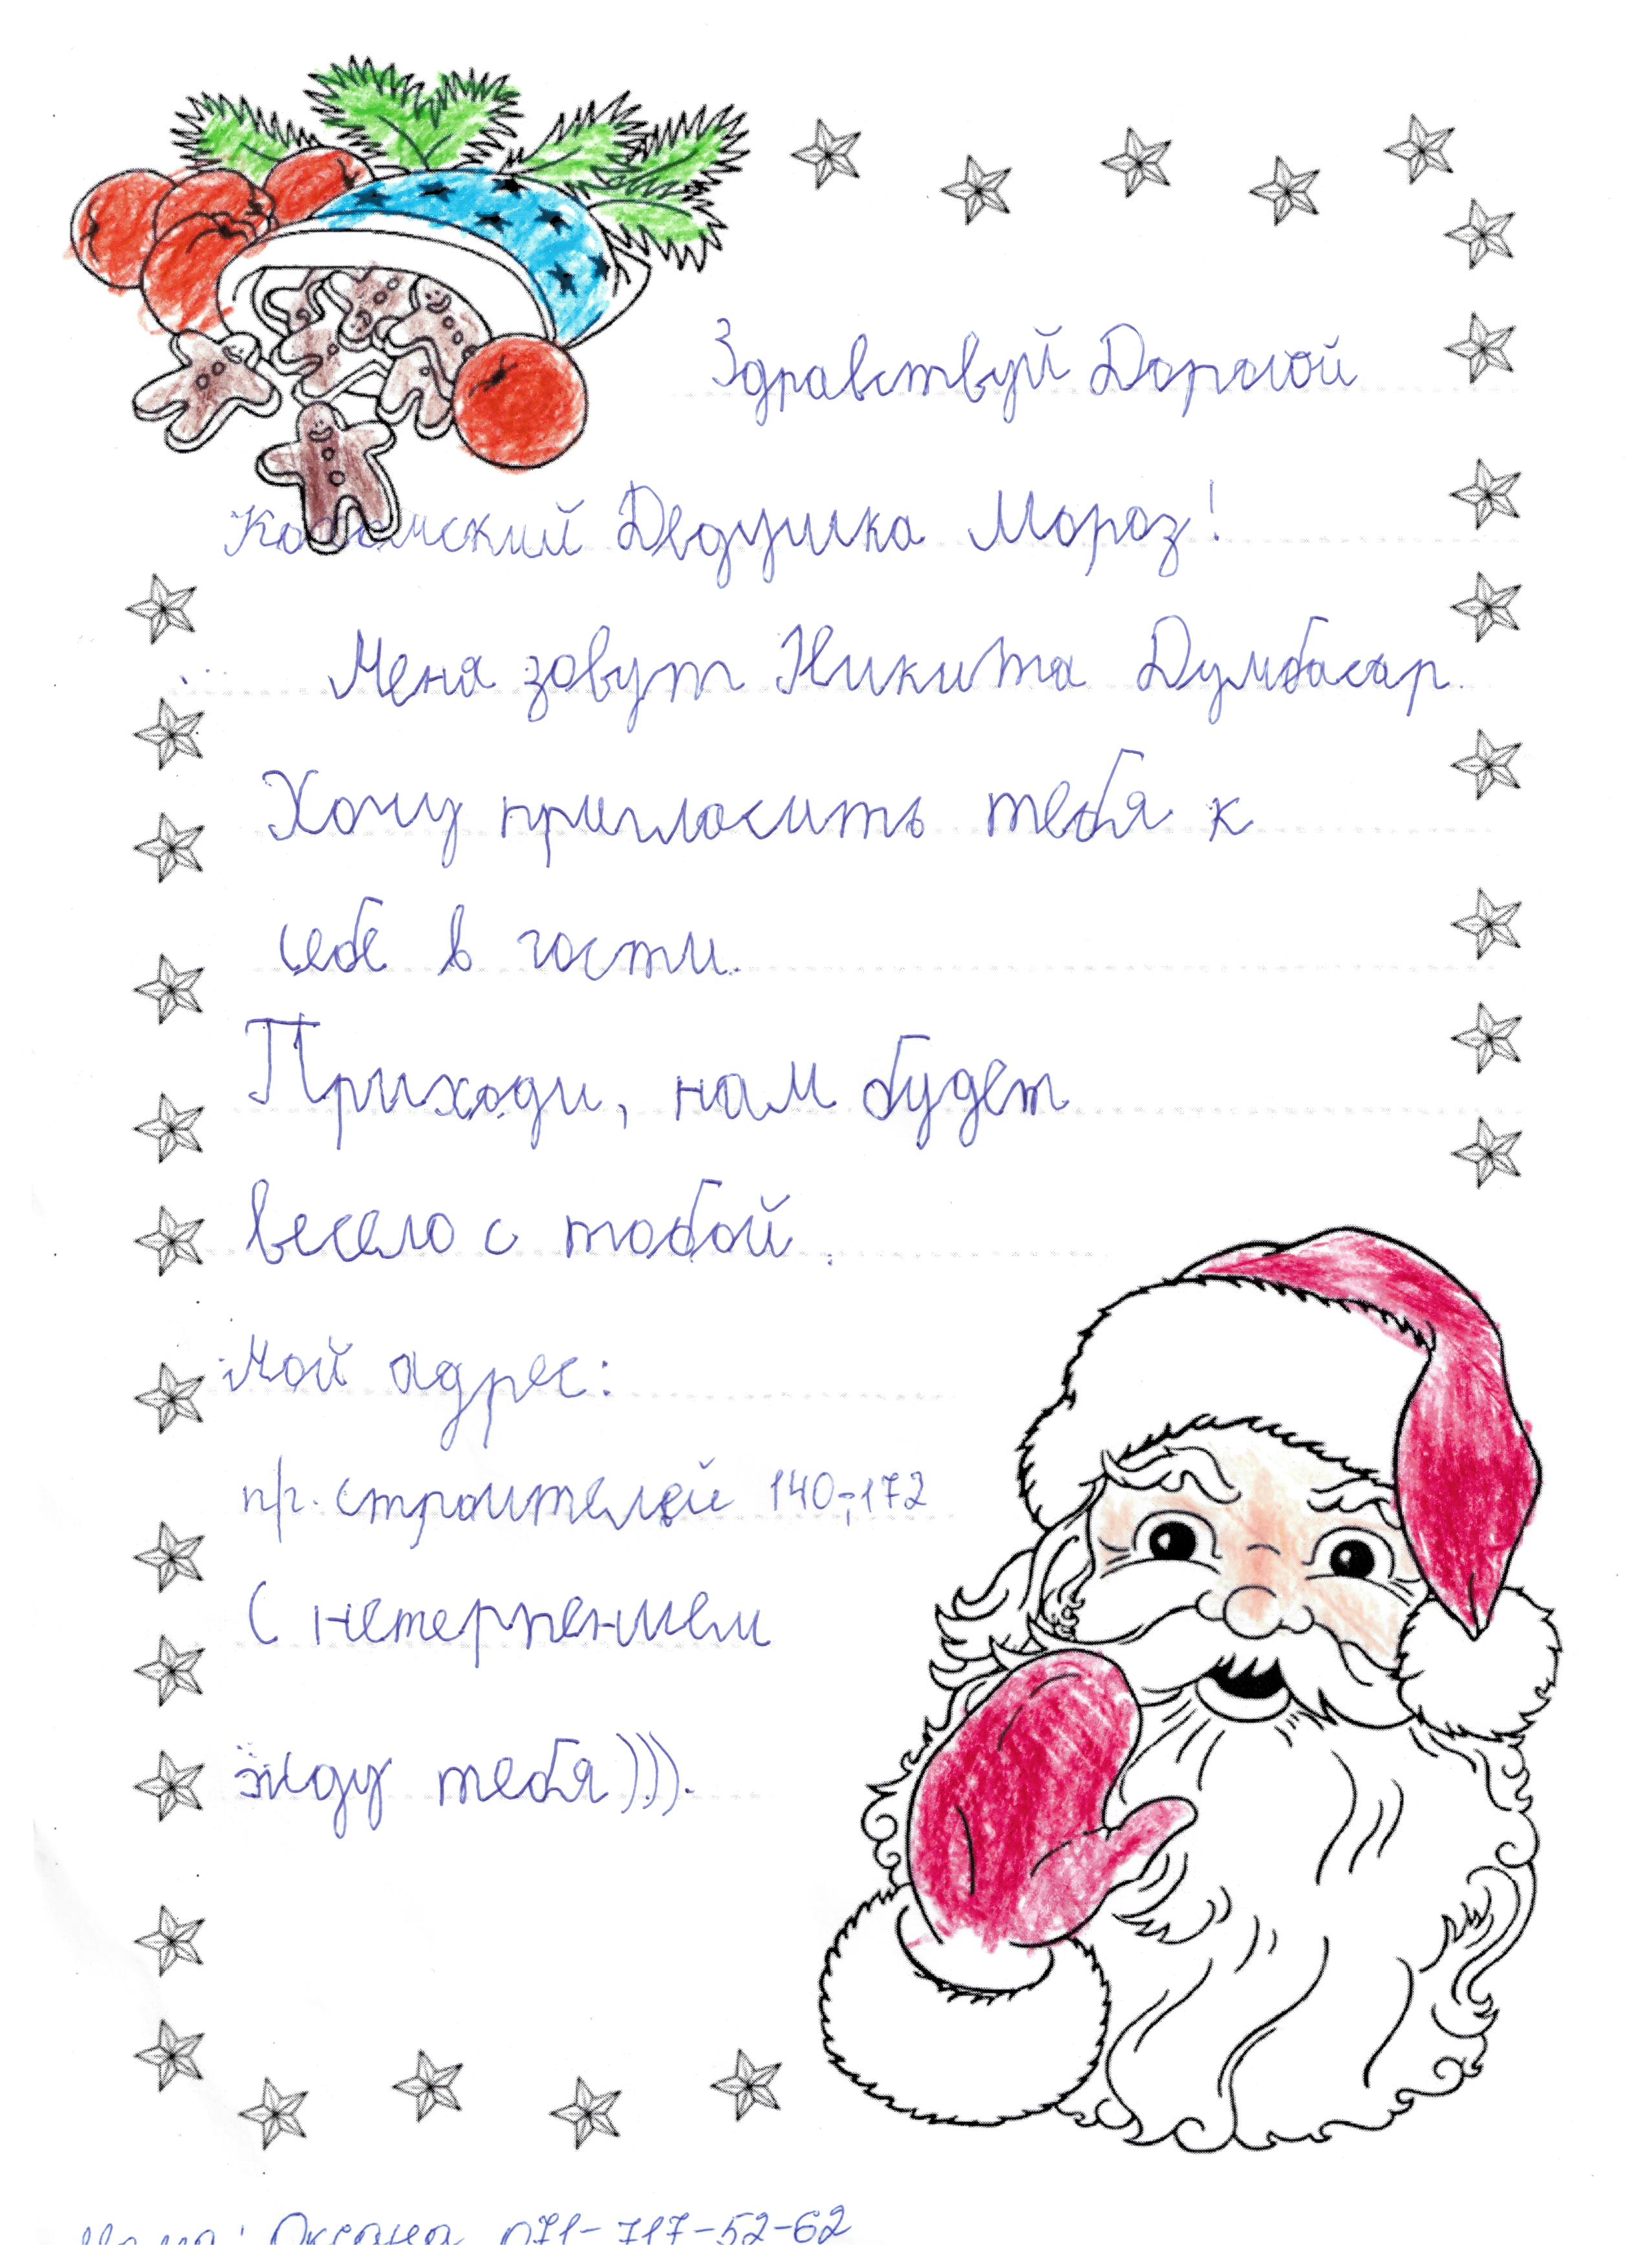 Здравствуй Дорогой
Дедушка Мороз!
Меня зовут Никита Думбасар.
Хочу пригласить тебя к
себе в гости.
Приходи, нам будет
весело с тобой.
Мой адрес:
пр. строителей 140-172
С нетерпением
жду тебя))).
Мама: Оксана 071-717-52-62